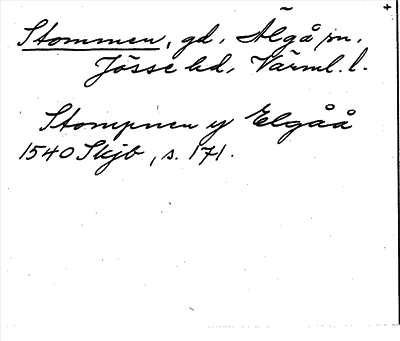 Stommen, gd, Älgå sn.
Jösse hd, Värml. l.
Stompnen y Elgåå
1540 Skjb, s. 171.